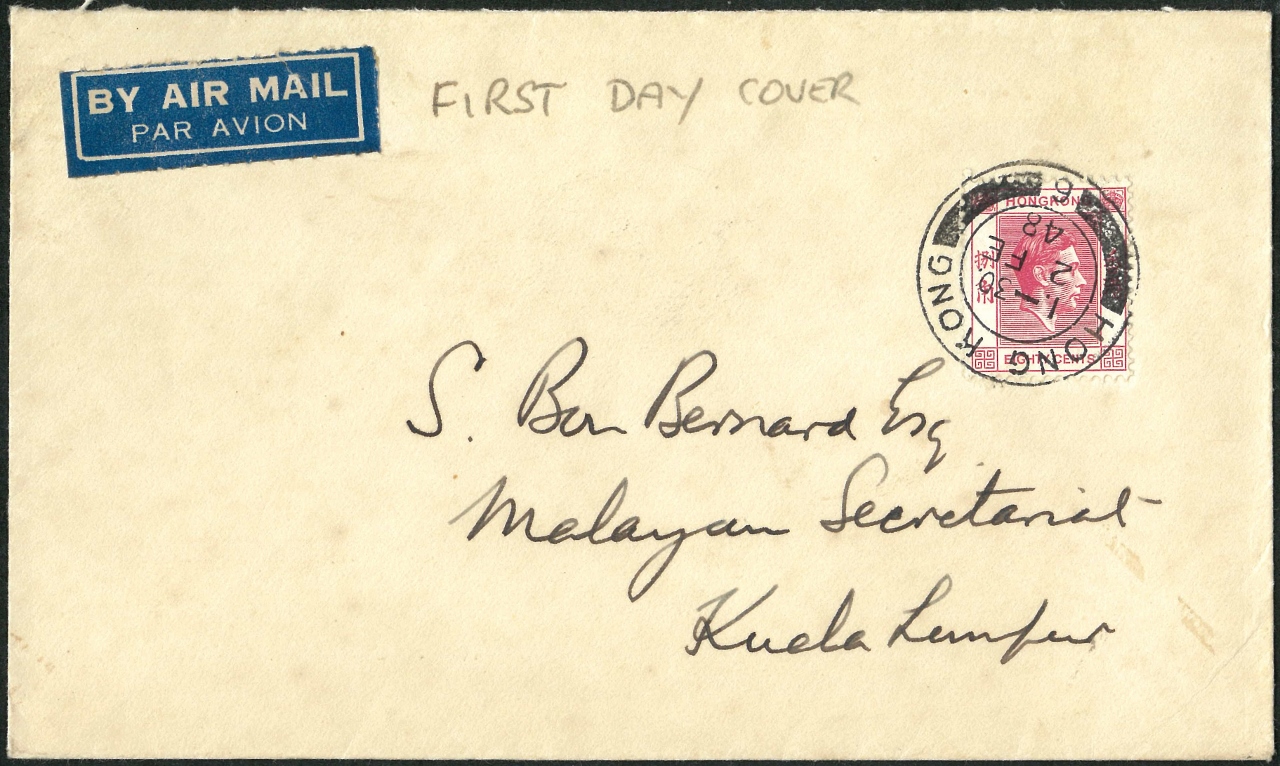 BY AIR MAIL
PAR AVION
FIRST DAY COVER
HONGKONG
EIGHT CENTS
HONG KONG
6
1-30
2 FE
48
S. Bon Bernard Esq
Malayan Secretariat
Kuala Lumpur